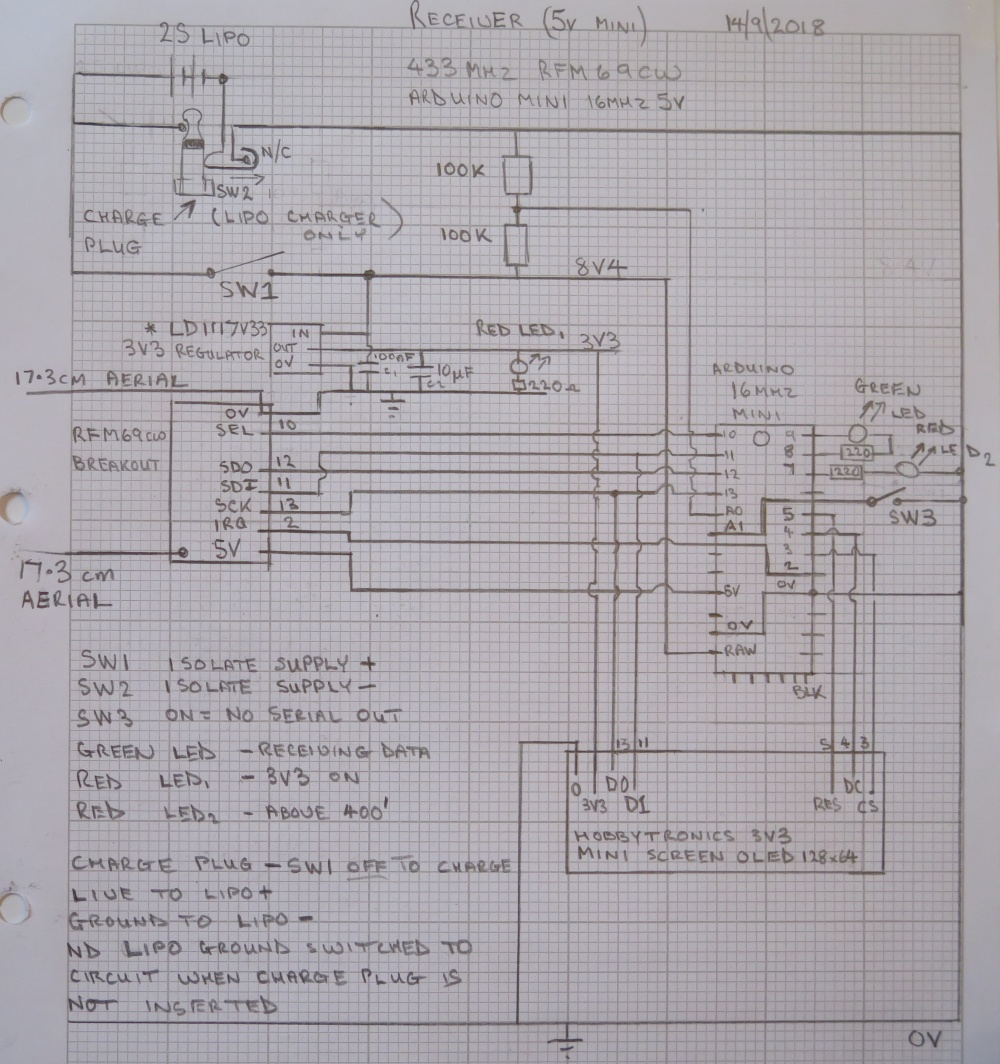 RECEIVER (5V MINI) 14/9/2018
2S LIPO
433 MHZ RFM69CW
ARDUINO MINI 16MHZ 5V
N/C
100K
SW2
CHARGE (LIPO CHARGER
PLUG ONLY)
100K
8V4
SW1
* LD1117V33 IN
3V3 REGULATOR OUT
0V
RED LED1 3V3
100nF
C1
10µF
C2
220Ω
17.3cm AERIAL
ARDUINO
16MHZ
MINI
GREEN
LED
RED
LED2
RFM69CW
BREAKOUT
0V
SEL 10
SDO 12
SDI 11
SCK 13
IRQ 2
5V
10 9
11 8 220
12 7 220
13
A0 5
A1 4
3
2
5V 0V
0V
RAW
BLK
SW3
17.3 cm
AERIAL
SW1 ISOLATE SUPPLY +
SW2 ISOLATE SUPPLY -
SW3 ON = NO SERIAL OUT
GREEN LED - RECEIVING DATA
RED LED1 - 3V3 ON
RED LED2 - ABOVE 400'
13 11 5 4 3
0 3V3 D0 D1 RES DC CS
HOBBYTRONICS 3V3
MINI SCREEN OLED 128x64
CHARGE PLUG - SW1 OFF TO CHARGE
LIVE TO LIPO +
GROUND TO LIPO -
ND LIPO GROUND SWITCHED TO
CIRCUIT WHEN CHARGE PLUG IS
NOT INSERTED
0V